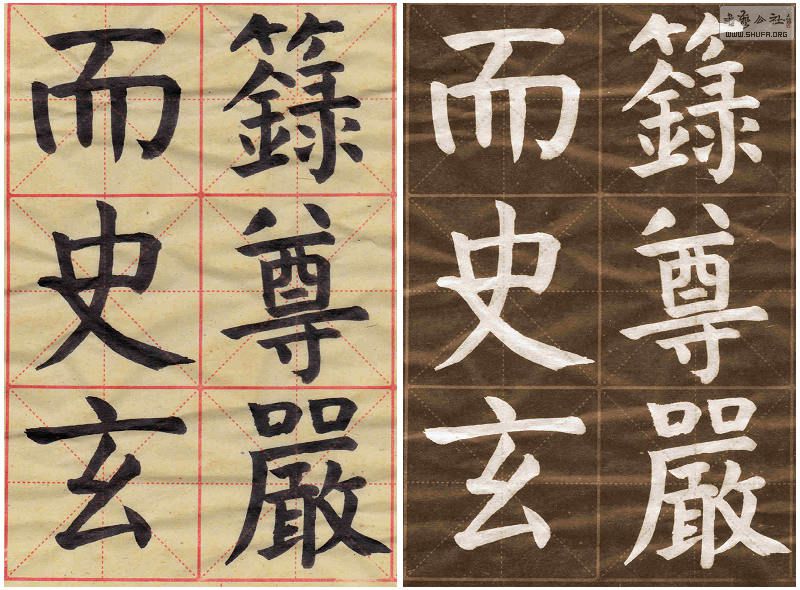 籙尊嚴
而史玄
籙尊嚴
而史玄
书藝公社
WWW.SHUFA.ORG